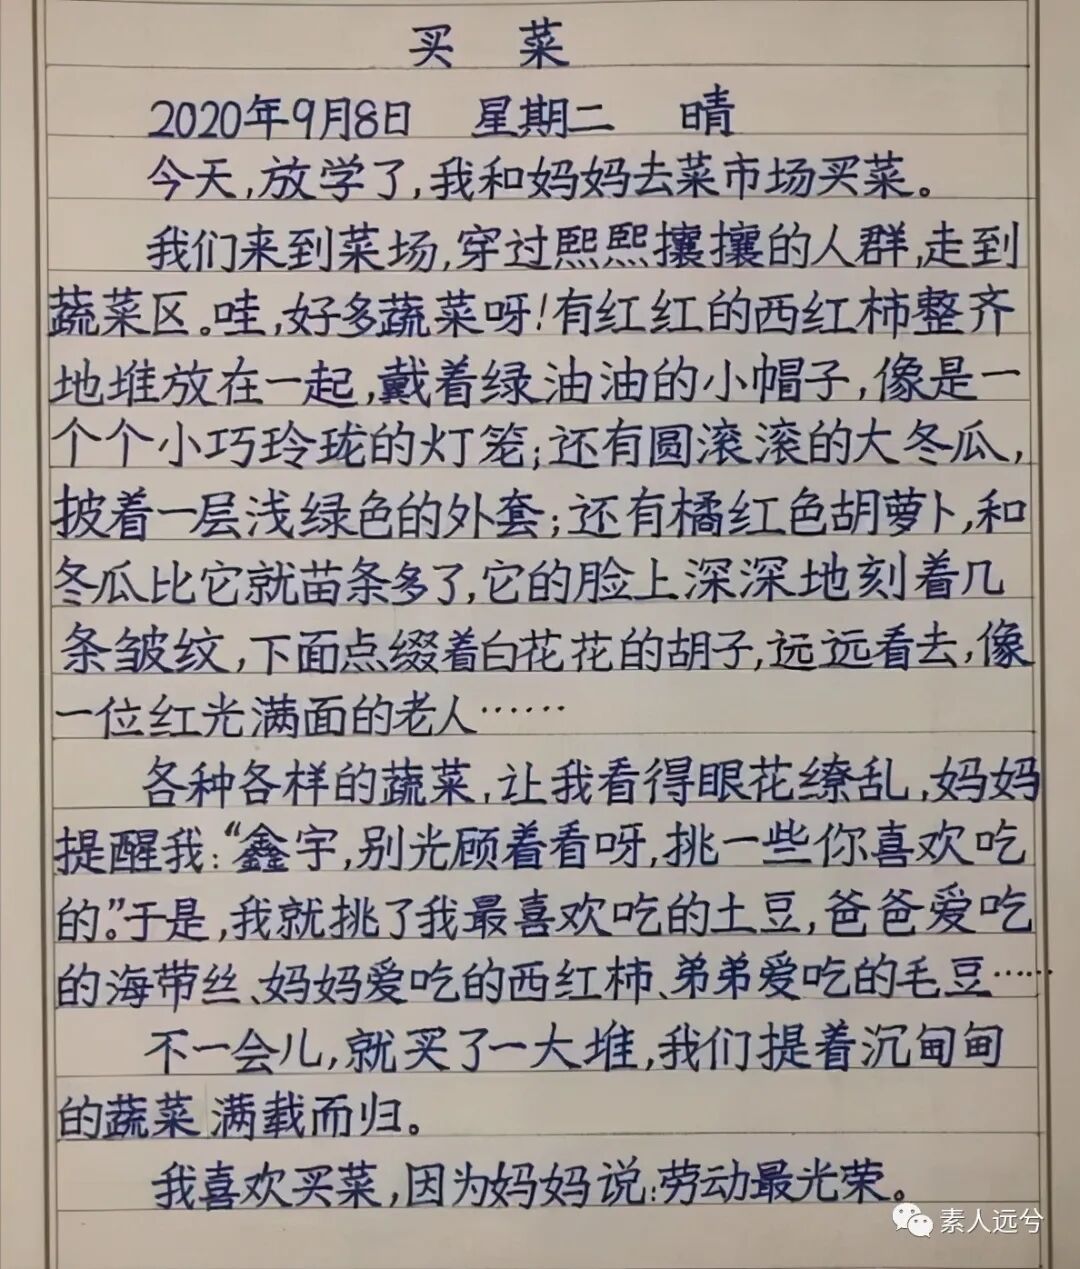 买 菜
2020年9月8日 星期二 晴
今天,放学了,我和妈妈去菜市场买菜。
我们来到菜场,穿过熙熙攘攘的人群,走到
蔬菜区。哇,好多蔬菜呀!有红红的西红柿整齐
地堆放在一起,戴着绿油油的小帽子,像是一
个个小巧玲珑的灯笼;还有圆滚滚的大冬瓜,
披着一层浅绿色的外套;还有橘红色胡萝卜,和
冬瓜比它就苗条多了,它的脸上深深地刻着几
条皱纹,下面点缀着白花花的胡子,远远看去,像
一位红光满面的老人……
各种各样的蔬菜,让我看得眼花缭乱,妈妈
提醒我:“鑫宇,别光顾着看呀,挑一些你喜欢吃
的。”于是,我就挑了我最喜欢吃的土豆,爸爸爱吃
的海带丝、妈妈爱吃的西红柿、弟弟爱吃的毛豆……
不一会儿,就买了一大堆,我们提着沉甸甸
的蔬菜满载而归。
我喜欢买菜,因为妈妈说:劳动最光荣。
素人远兮